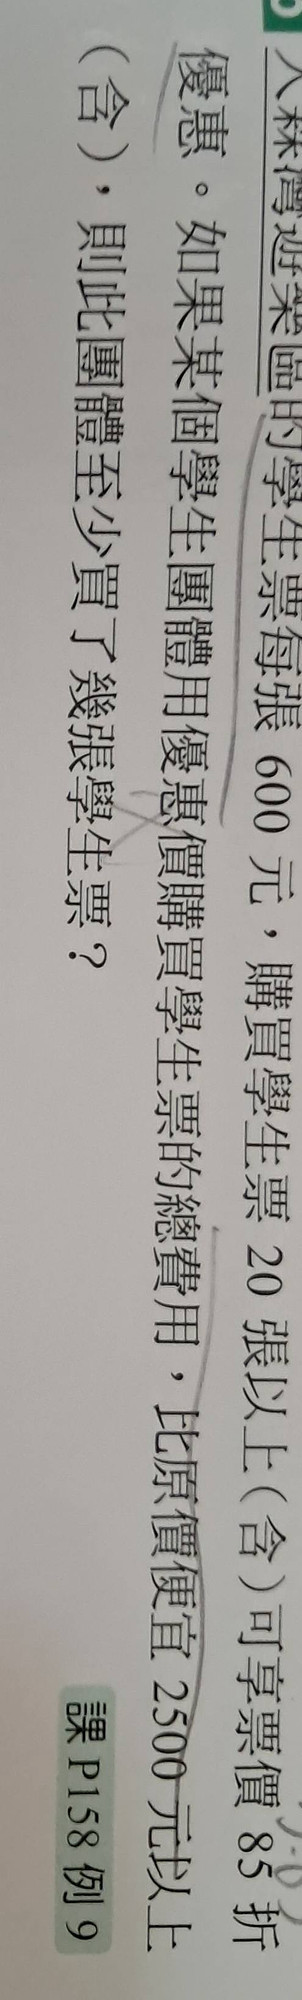 人森灣遊樂區的學生票每張 600 元，購買學生票 20 張以上（含）可享票價 85 折
優惠。如果某個學生團體用優惠價購買學生票的總費用，比原價便宜 2500 元以上
（含），則此團體至少買了幾張學生票？
課 P158 例 9